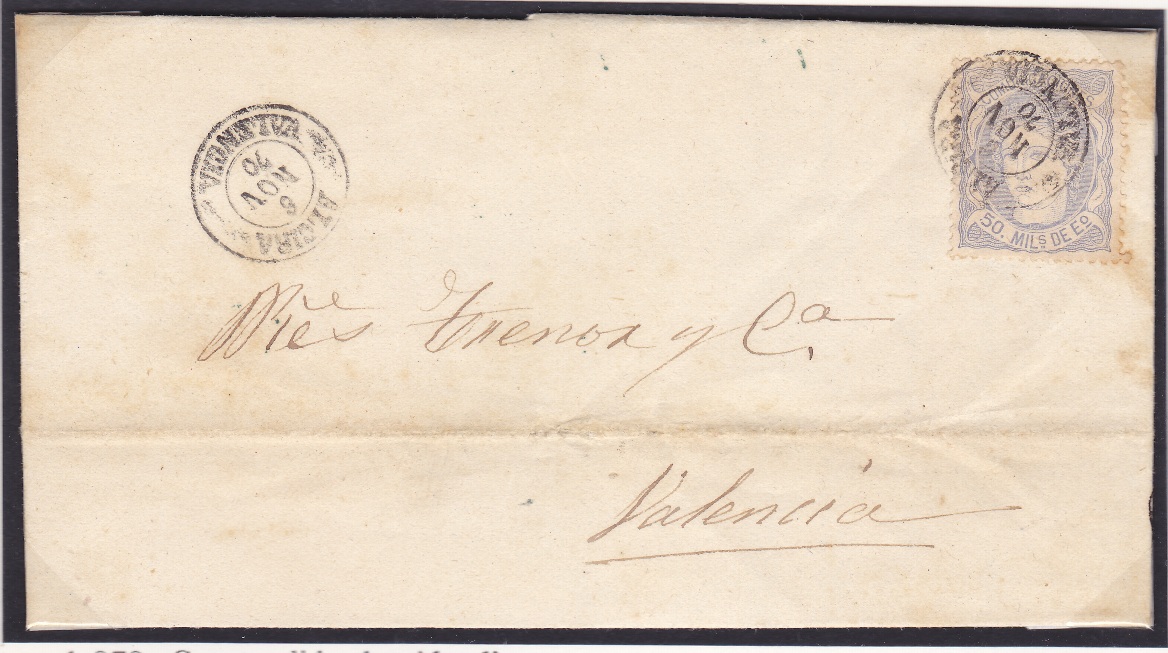 ALCIRA
6
NOV
70
VALENCIA
ALCIRA
NOV
70
VALENCIA
50. MILS DE EO
Sres Trenor y Ca.
Valencia